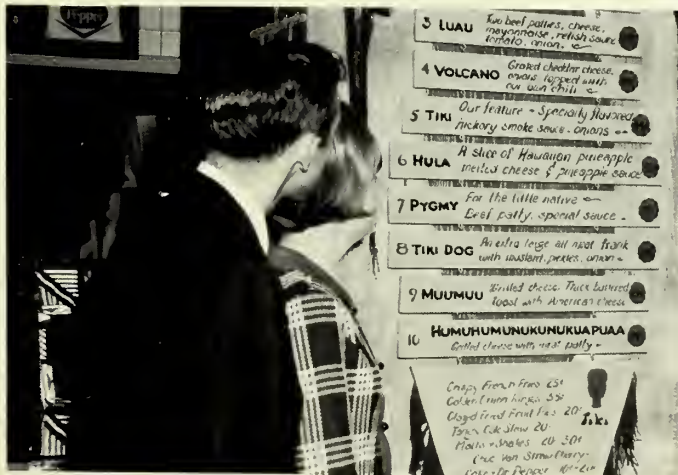 Pepper
3 LUAU Two beef patties, cheese,
mayonnaise, relish sauce
tomato, onion.
4 VOLCANO Grated cheddar cheese,
onions topped with
our own chili
5 TIKI Our feature - Specially flavored
hickory smoke sauce, onions
6 HULA A slice of Hawaiian pineapple
melted cheese & pineapple sauce
7 PYGMY For the little native
Beef patty, special sauce
8 TIKI DOG An extra large all meat frank
with mustard, pickles, onion
9 MUUMUU Grilled cheese. Thick buttered
Toast with American cheese
10 HUMUHUMUNUKUNUKUAPUAA
Grilled cheese with meat patty
Crispy French Fries 25¢
Golden Onion Rings 35¢
Fried Fruit Pies 20¢
Cole Slaw 20
Malts - Shakes 20 30¢
Choc Van Straw Cherry
Coke - Dr Pepper 10-20¢
Tiki